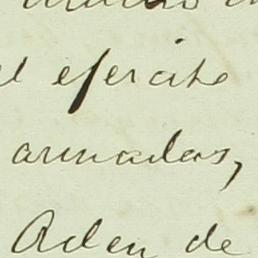 el ejercito
armadas,
Orden de